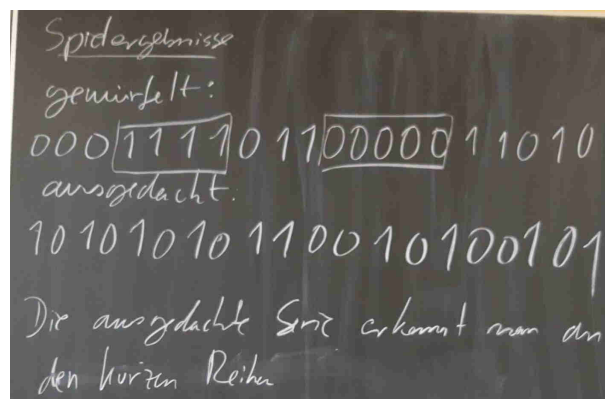 Spielergebnisse
gewürfelt:
000 1111 0 11 00000 11010
ausgedacht:
10101010110010100101
Die ausgedachte Serie erkennt man an
den kurzen Reihen